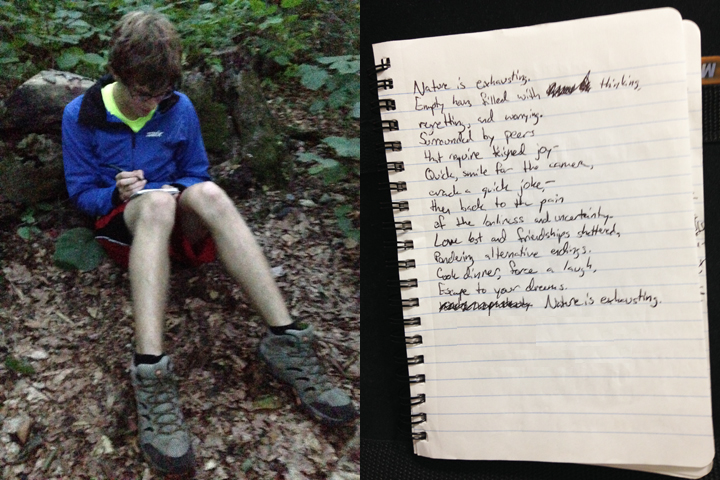 Nature is exhausting.
Empty hours filled with thinking,
regretting, and worrying.
Surrounded by peers
that require feigned joy—
Quick, smile for the camera,
crack a quick joke,—
then back to the pain
of the lonliness and uncertainty.
Love lost and friendships shattered,
Pondering alternative endings.
Cook dinner, force a laugh,
Escape to your dreams.
Nature is exhausting.